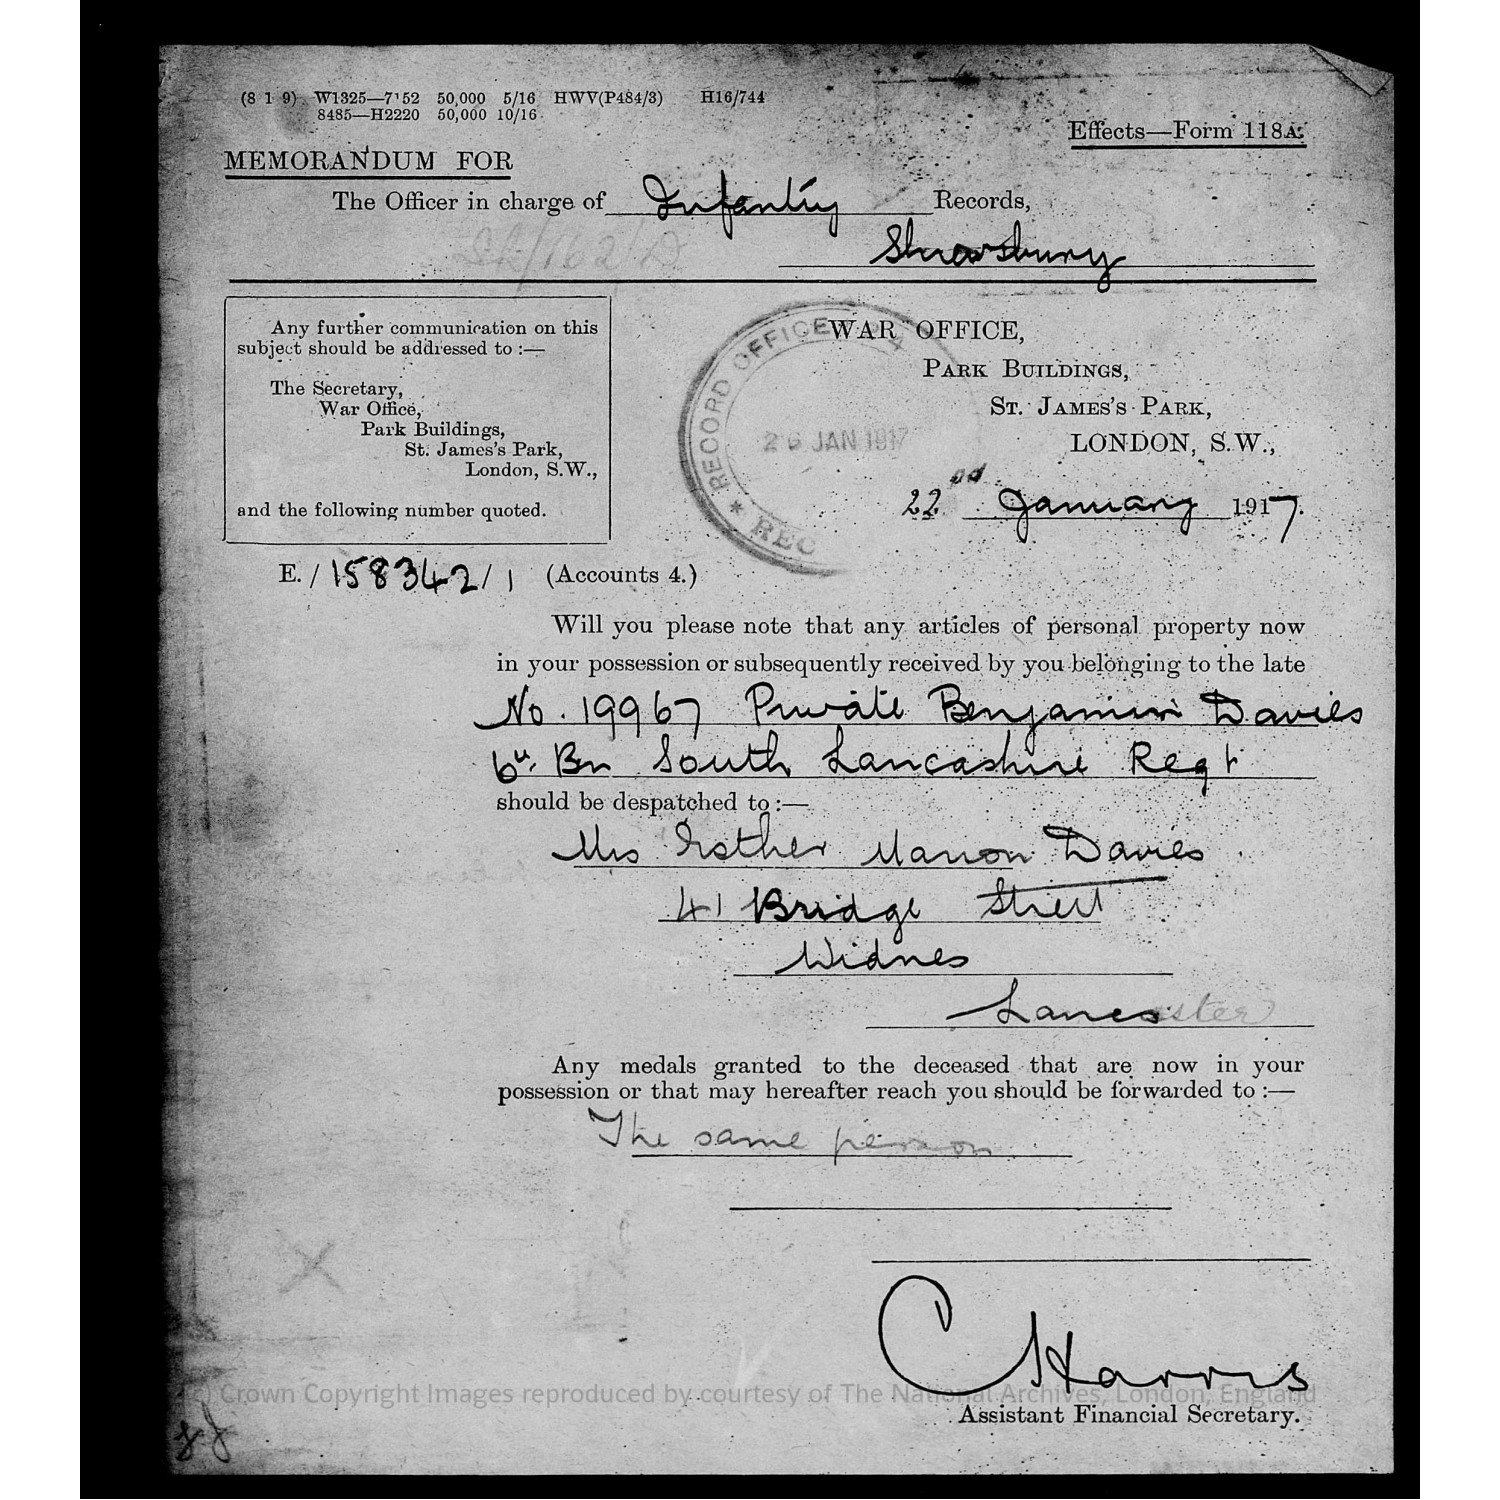 (8 1 9) W1325—7152 50,000 5/16 HWV(P484/3) H16/744
8485—H2220 50,000 10/16
Effects—Form 118A.
MEMORANDUM FOR
The Officer in charge of Infantry Records,
Shrewsbury
Any further communication on this
subject should be addressed to :—
The Secretary,
War Office,
Park Buildings,
St. James's Park,
London, S.W.,
and the following number quoted.
RECORD OFFICE
26 JAN 1917
* REC
WAR OFFICE,
PARK BUILDINGS,
ST. JAMES'S PARK,
LONDON, S.W.,
22nd January 1917.
E./158342/1 (Accounts 4.)
Will you please note that any articles of personal property now
in your possession or subsequently received by you belonging to the late
No. 19967 Private Benjamin Davies
6th Bn South Lancashire Regt
should be despatched to :—
Mrs Esther Marion Davies
41 Bridge Street
Widnes
Lancaster
Any medals granted to the deceased that are now in your
possession or that may hereafter reach you should be forwarded to :—
The same person
C Harris
Assistant Financial Secretary.
(c) Crown Copyright Images reproduced by courtesy of The National Archives, London, England